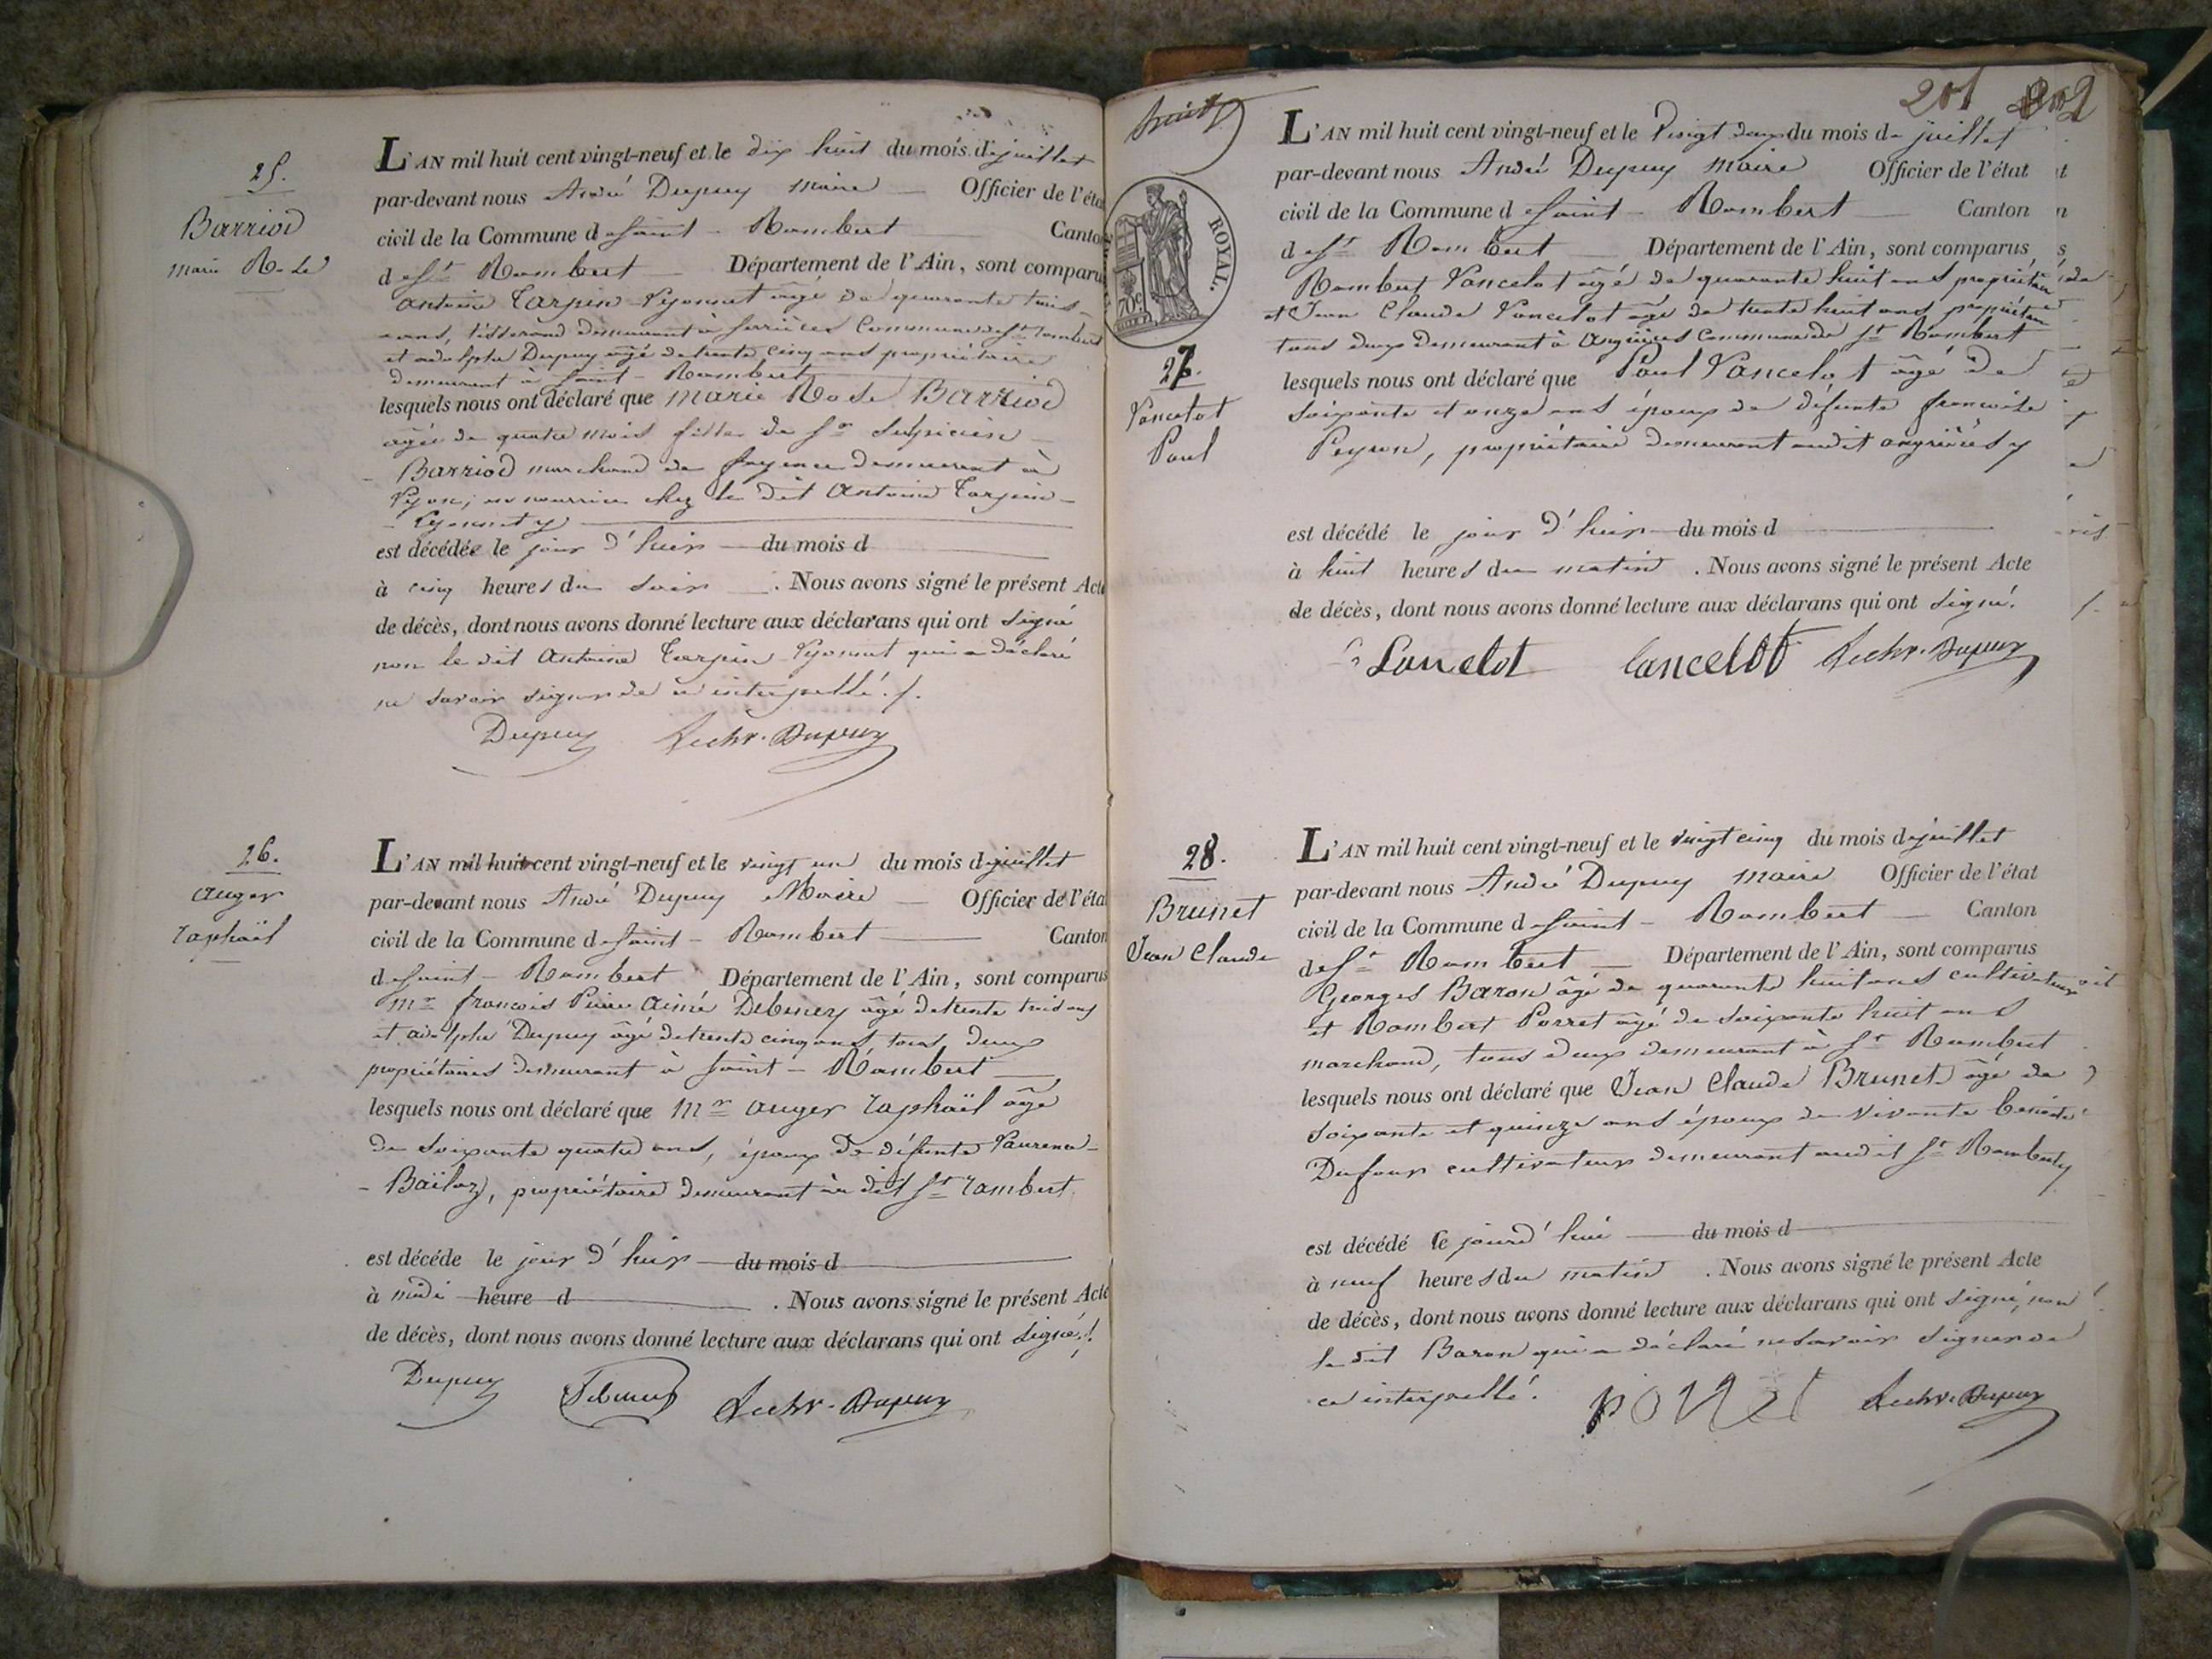 25.
Barriod
marie Rose
L'AN mil huit cent vingt-neuf et le dix huit du mois de juillet
par-devant nous André Dupuy maire Officier de l'éta
civil de la Commune de Saint-Rambert Canto
de St Rambert Département de l'Ain, sont comparu
antoine Tarpin-Lyonnet âgé de quarante trois
ans, tisserand demeurant à serrières Commune de St rambert
et adolphe Dupuy âgé de trente cinq ans propriétaire
demeurant à Saint-Rambert
lesquels nous ont déclaré que marie Rose Barriod
agée de quatre mois fille de Sr Sulpicien
Barriod marchand de fayence demeurant à
Lyon, en nourrice chez le dit Antoine Tarpin-
-Lyonnet
est décédée le jour d'huir du mois d
à cinq heures du soir . Nous avons signé le présent Acte
de décès, dont nous avons donné lecture aux déclarans qui ont signé
non le dit Antoine Tarpin-Lyonnet qui a déclaré
ne savoir signer de ce interpellé ./.
Dupuy Dupuy
26.
auger
raphaël
L'AN mil huit cent vingt-neuf et le vingt un du mois de juillet
par-devant nous André Dupuy Maire Officier de l'éta
civil de la Commune de Saint-Rambert Canton
de Saint-Rambert Département de l'Ain, sont comparus
Mr françois Pierre aimé Debeney âgé de trente trois ans
et adolphe Dupuy âgé de trente cinq ans, tous deux
propriétaires demeurant à Saint-Rambert
lesquels nous ont déclaré que Mr auger raphaël âgé
de soixante quatre ans, époux de défunte Laurence
Baïloz, propriétaire demeurant au dit St rambert
est décédé le jour d'huir du mois d
à midi heure d . Nous avons signé le présent Acte
de décès, dont nous avons donné lecture aux déclarans qui ont signé ./.
Dupuy Debeney Dupuy
huit
201 202
ROYAL.
70c
27.
Lancelot
Paul
L'AN mil huit cent vingt-neuf et le Vingt deux du mois de juillet
par-devant nous André Dupuy Maire Officier de l'état
civil de la Commune de Saint-Rambert Canton
de St Rambert Département de l'Ain, sont comparus
Rambert Lancelot âgé de quarante huit ans propriétaire
et Jean Claude Lancelot âgé de trente huit ans propriétaire
tous deux demeurant à angrières Commune de St Rambert
lesquels nous ont déclaré que Paul Lancelot âgé de
soixante et onze ans époux de défunte francoise
Peyron, propriétaire demeurant audit angrières
est décédé le jour d'huir du mois d
à huit heures du matin . Nous avons signé le présent Acte
de décès, dont nous avons donné lecture aux déclarans qui ont signé.
Lancelot Lancelot Dupuy
28.
Brunet
Jean Claude
L'AN mil huit cent vingt-neuf et le vingt cinq du mois de juillet
par-devant nous André Dupuy Maire Officier de l'état
civil de la Commune de Saint-Rambert Canton
de St Rambert Département de l'Ain, sont comparus
Georges Baron âgé de quarante huit ans cultivateur
et Rambert Porret âgé de soixante huit ans
marchand, tous deux demeurant à St Rambert
lesquels nous ont déclaré que Jean Claude Brunet âgé de
soixante et quinze ans époux de vivante benoite
Dufour cultivateur demeurant audit St Rambert
est décédé le jourd'hui du mois d
à neuf heures du matin . Nous avons signé le présent Acte
de décès, dont nous avons donné lecture aux déclarans qui ont signé, non
le dit Baron qui a déclaré ne savoir signer de
ce interpellé. porret Dupuy